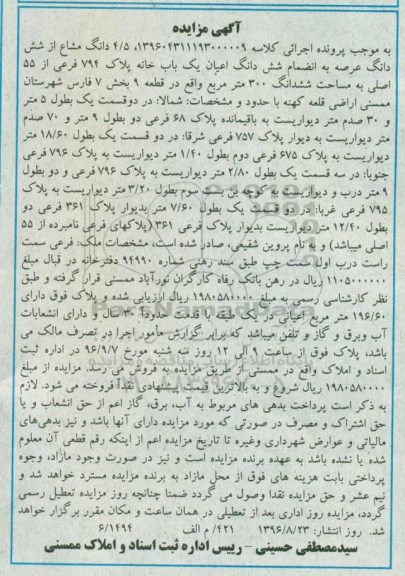 آگهی مزایده
به موجب پرونده اجرائی کلاسه ۱۳۹۶۰۴۳۱۱۱۹۳۰۰۰۰۰۹، ۴/۵ دانگ مشاع از شش
دانگ عرصه به انضمام شش دانگ اعیان یک باب خانه پلاک ۷۹۴ فرعی از ۵۵
اصلی به مساحت ششدانگ ۳۰۰ متر مربع واقع در قطعه ۹ بخش ۷ فارس شهرستان
ممسنی اراضی قلعه کهنه با حدود و مشخصات: شمالا: در دوقسمت یک بطول ۵ متر
و ۳۰ صدم متر دیواریست به باقیمانده پلاک ۶۸ فرعی دو بطول ۹ متر و ۷۰ صدم
متر دیواریست به دیوار پلاک ۷۵۷ فرعی شرقا: در دو قسمت یک بطول ۱۸/۶۰ متر
دیواریست به پلاک ۶۷۵ فرعی دوم بطول ۱/۴۰ متر دیواریست به پلاک ۷۹۶ فرعی
جنوبا: در سه قسمت یک بطول ۲/۸۰ متر دیواریست به پلاک ۷۹۶ فرعی و دو بطول
۹ متر درب و دیواریست به کوچه بن بست سوم بطول ۳/۲۰ متر دیواریست به پلاک
۷۹۵ فرعی غربا: در دو قسمت یک بطول ۷/۶۰ متر بدیوار پلاک ۳۶۱ فرعی دو
بطول ۱۲/۴۰ متر دیواریست بدیوار پلاک فرعی ۳۶۱ (پلاکهای فرعی نامبرده از ۵۵
اصلی میباشد) و به نام پروین شفیعی، صادر شده است، مشخصات ملک: فرعی سمت
راست درب اول سمت چپ طبق سند رهنی شماره ۹۴۹۹۰ دفترخانه در قبال مبلغ
۱۱۰۵۰۰۰۰۰۰ ریال در رهن بانک رفاه کارگران نورآباد ممسنی قرار گرفته و طبق
نظر کارشناسی رسمی به مبلغ ۱۹۸۰۵۸۰۰۰۰ ریال ارزیابی شده و پلاک فوق دارای
۱۹۶/۶۰ متر مربع اعیانی در یک طبقه با قدمت حدودا سال و دارای انشعابات
آب وبرق و گاز و تلفن میباشد که برابر گزارش مامور اجرا در تصرف مالک می
باشد، پلاک فوق از ساعت ۹ الی ۱۲ روز سه شنبه مورخ ۹۶/۹/۷ در اداره ثبت
اسناد و املاک واقع در ممسنی از طریق مزایده به فروش می رسد. مزایده از مبلغ
۱۹۸۰۵۸۰۰۰۰ ریال شروع و به بالاترین قیمت پیشنهادی نقدا فروخته می شود. لازم
به ذکر است پرداخت بدهی های مربوط به آب، برق، گاز اعم از حق انشعاب و یا
حق اشتراک و مصرف در صورتی که مورد مزایده دارای آنها باشد و نیز بدهی‌های
مالیاتی و عوارض شهرداری وغیره تا تاریخ مزایده اعم از اینکه رقم قطعی آن معلوم
شده یا نشده باشد به عهده برنده مزایده است و نیز در صورت وجود مازاد، وجوه
پرداختی بابت هزینه های فوق از محل مازاد به برنده مزایده مسترد خواهد شد و
نیم عشر و حق مزایده نقدا وصول می گردد ضمنا چنانچه روز مزایده تعطیل رسمی
گردد، مزایده روز اداری بعد از تعطیلی در همان ساعت و مکان مقرر برگزار خواهد
شد. روز انتشار: ۱۳۹۶/۸/۲۳ ۴۲۱/ م الف ۶/۱۴۹۴
سیدمصطفی حسینی - رییس اداره ثبت اسناد و املاک ممسنی